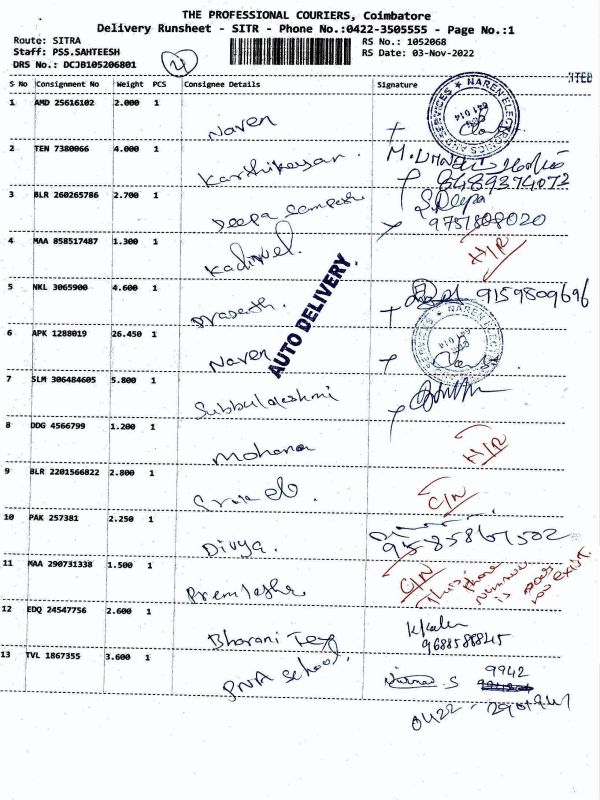 THE PROFESSIONAL COURIERS, Coimbatore
Delivery Runsheet - SITR - Phone No.:0422-3505555 - Page No.:1
Route: SITRA
RS No.: 1052068
Staff: PSS.SAHTEESH
RS Date: 03-Nov-2022
DRS No.: DCJB105206801
S No Consignment No Weight PCS Consignee Details Signature
1 AMD 25616102 2.000 1
Naven
NAREN ELECTRONICS AND SERVICES
641 014
2 TEN 7380066 4.000 1
Karthikeyan.
8489374072
3 BLR 260265786 2.700 1
Deepa Sampath
S. Deepa
9751808020
4 MAA 858517487 1.300 1
Kadirvel.
H/R
AUTO DELIVERY.
5 NKL 3065900 4.600 1
Prasath.
9159809696
6 APK 1288019 26.450 1
Naven
NAREN ELECT
SERVICES
641 014
7 SLM 306484605 5.800 1
Subbulakshmi
8 DDG 4566799 1.200 1
Mohana
H/R
9 BLR 2201566822 2.800 1
C/N
10 PAK 257381 2.250 1
Divya.
9585861502
11 MAA 290731338 1.500 1
Premlesha
C/N
This phone
number
is does
not exist.
12 EDQ 24547756 2.600 1
Bharani Tex
9688588845
13 TVL 1867355 3.600 1
PNA School.
S 9942
0422 -